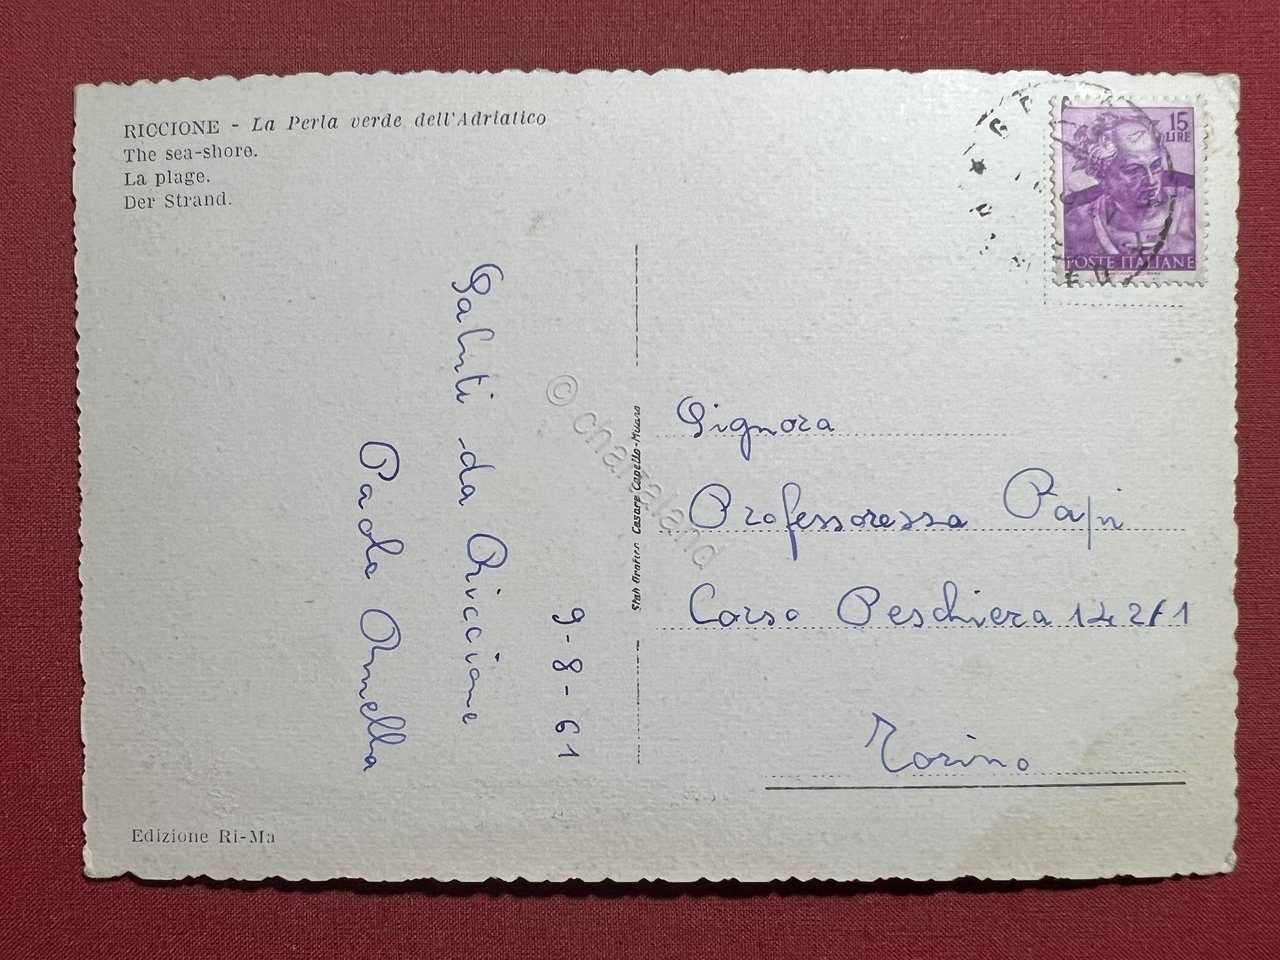 RICCIONE - La Perla verde dell'Adriatico
The sea-shore.
La plage.
Der Strand.
15
LIRE
POSTE ITALIANE
9-8-61
Saluti da Riccione
Paola Ornella
Stab. Grafico Cesare Capello-Milano
Signora
Professoressa Papi
Corso Peschiera 142/1
Torino
Edizione Ri-Ma
© charzaland